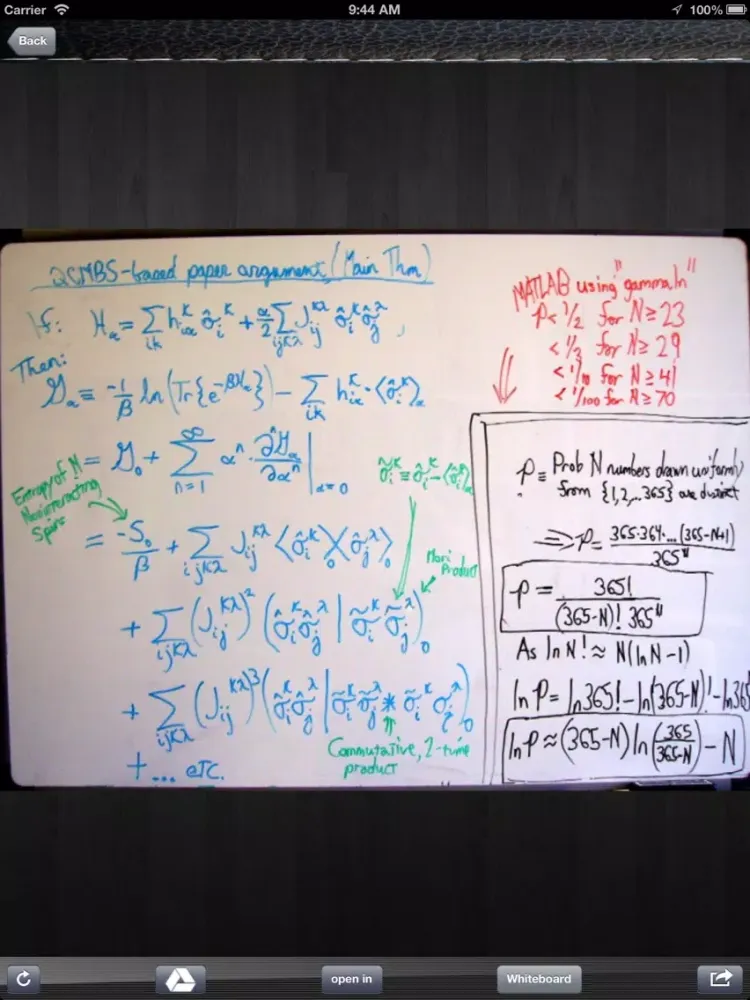 Carrier 9:44 AM 100%
Back
QCMBS-based paper argument, (Main Thm)
If: H_α = Σ_{ik} h_{iα}^κ σ̂_i^κ + α/2 Σ_{ijκλ} J_{ij}^{κλ} σ̂_i^κ σ̂_j^λ ,
Then:
G_α ≡ -1/β ln(Tr{e^{-βH_α}}) - Σ_{ik} h_{iα}^κ · ⟨σ̂_i^κ⟩_α
= G_0 + Σ_{n=1}^∞ α^n · ∂^n G_α / ∂α^n |_{α=0}
σ̃_i^κ ≡ σ̂_i^κ - ⟨σ̂_i^κ⟩_α
Entropy of N
Noninteracting
Spins
= -S_0/β + Σ_{ijκλ} J_{ij}^{κλ} ⟨σ̂_i^κ⟩_0 ⟨σ̂_j^λ⟩_0
Mori
Product
+ Σ_{ijκλ} (J_{ij}^{κλ})^2 (σ̂_i^κ σ̂_j^λ | σ̃_i^κ σ̃_j^λ)_0
+ Σ_{ijκλ} (J_{ij}^{κλ})^3 (σ̂_i^κ σ̂_j^λ | σ̃_i^κ σ̃_j^λ * σ̃_i^κ σ_j^λ)_0
Commutative, 2-time
product
+ ... etc.
MATLAB using "gammaln"
P < 1/2 for N ≥ 23
< 1/3 for N ≥ 29
< 1/10 for N ≥ 41
< 1/100 for N ≥ 70
P ≡ Prob N numbers drawn uniformly
from {1,2,...365} are distinct
⇒ P = 365·364·...(365-N+1) / 365^N
P = 365! / (365-N)! 365^N
As ln N! ≈ N(ln N - 1)
ln P = ln365! - ln(365-N)! - ln365
ln P ≈ (365-N) ln(365/365-N) - N
open in
Whiteboard